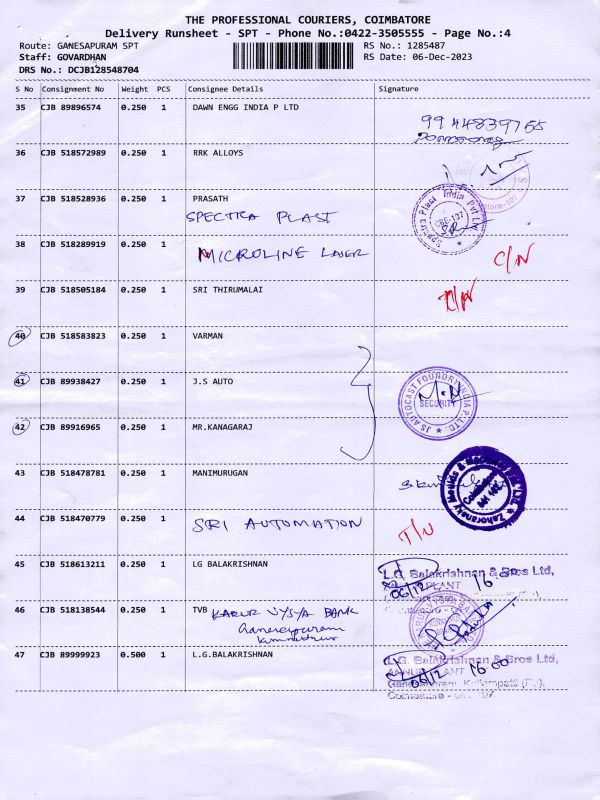 THE PROFESSIONAL COURIERS, COIMBATORE
Delivery Runsheet - SPT - Phone No.:0422-3505555 - Page No.:4
Route: GANESAPURAM SPT
RS No.: 1285487
Staff: GOVARDHAN
RS Date: 06-Dec-2023
DRS No.: DCJB128548704
S No Consignment No Weight PCS Consignee Details Signature
35 CJB 89896574 0.250 1 DAWN ENGG INDIA P LTD
9944839755
36 CJB 518572989 0.250 1 RRK ALLOYS
37 CJB 518528936 0.250 1 PRASATH
SPECTRA PLAST
Spectra Plast India Pvt Ltd
CBE-107
38 CJB 518289919 0.250 1 MICROLINE LASER C/N
39 CJB 518505184 0.250 1 SRI THIRUMALAI
40 CJB 518583823 0.250 1 VARMAN
41 CJB 89938427 0.250 1 J.S AUTO
JS AUTOCAST FOUNDRY INDIA P LTD.
SECURITY
42 CJB 89916965 0.250 1 MR.KANAGARAJ
43 CJB 518478781 0.250 1 MANIMURUGAN
44 CJB 518470779 0.250 1 SRI AUTOMATION T/N
45 CJB 518613211 0.250 1 LG BALAKRISHNAN
L.G. Balakrishnan & Bros Ltd,
PLANT
06/12
46 CJB 518138544 0.250 1 TVB KARUR VYSYA BANK
Ganesapuram
47 CJB 89999923 0.500 1 L.G.BALAKRISHNAN
L.G. Balakrishnan & Bros Ltd,
PLANT
06/12 16 00
Coimbatore